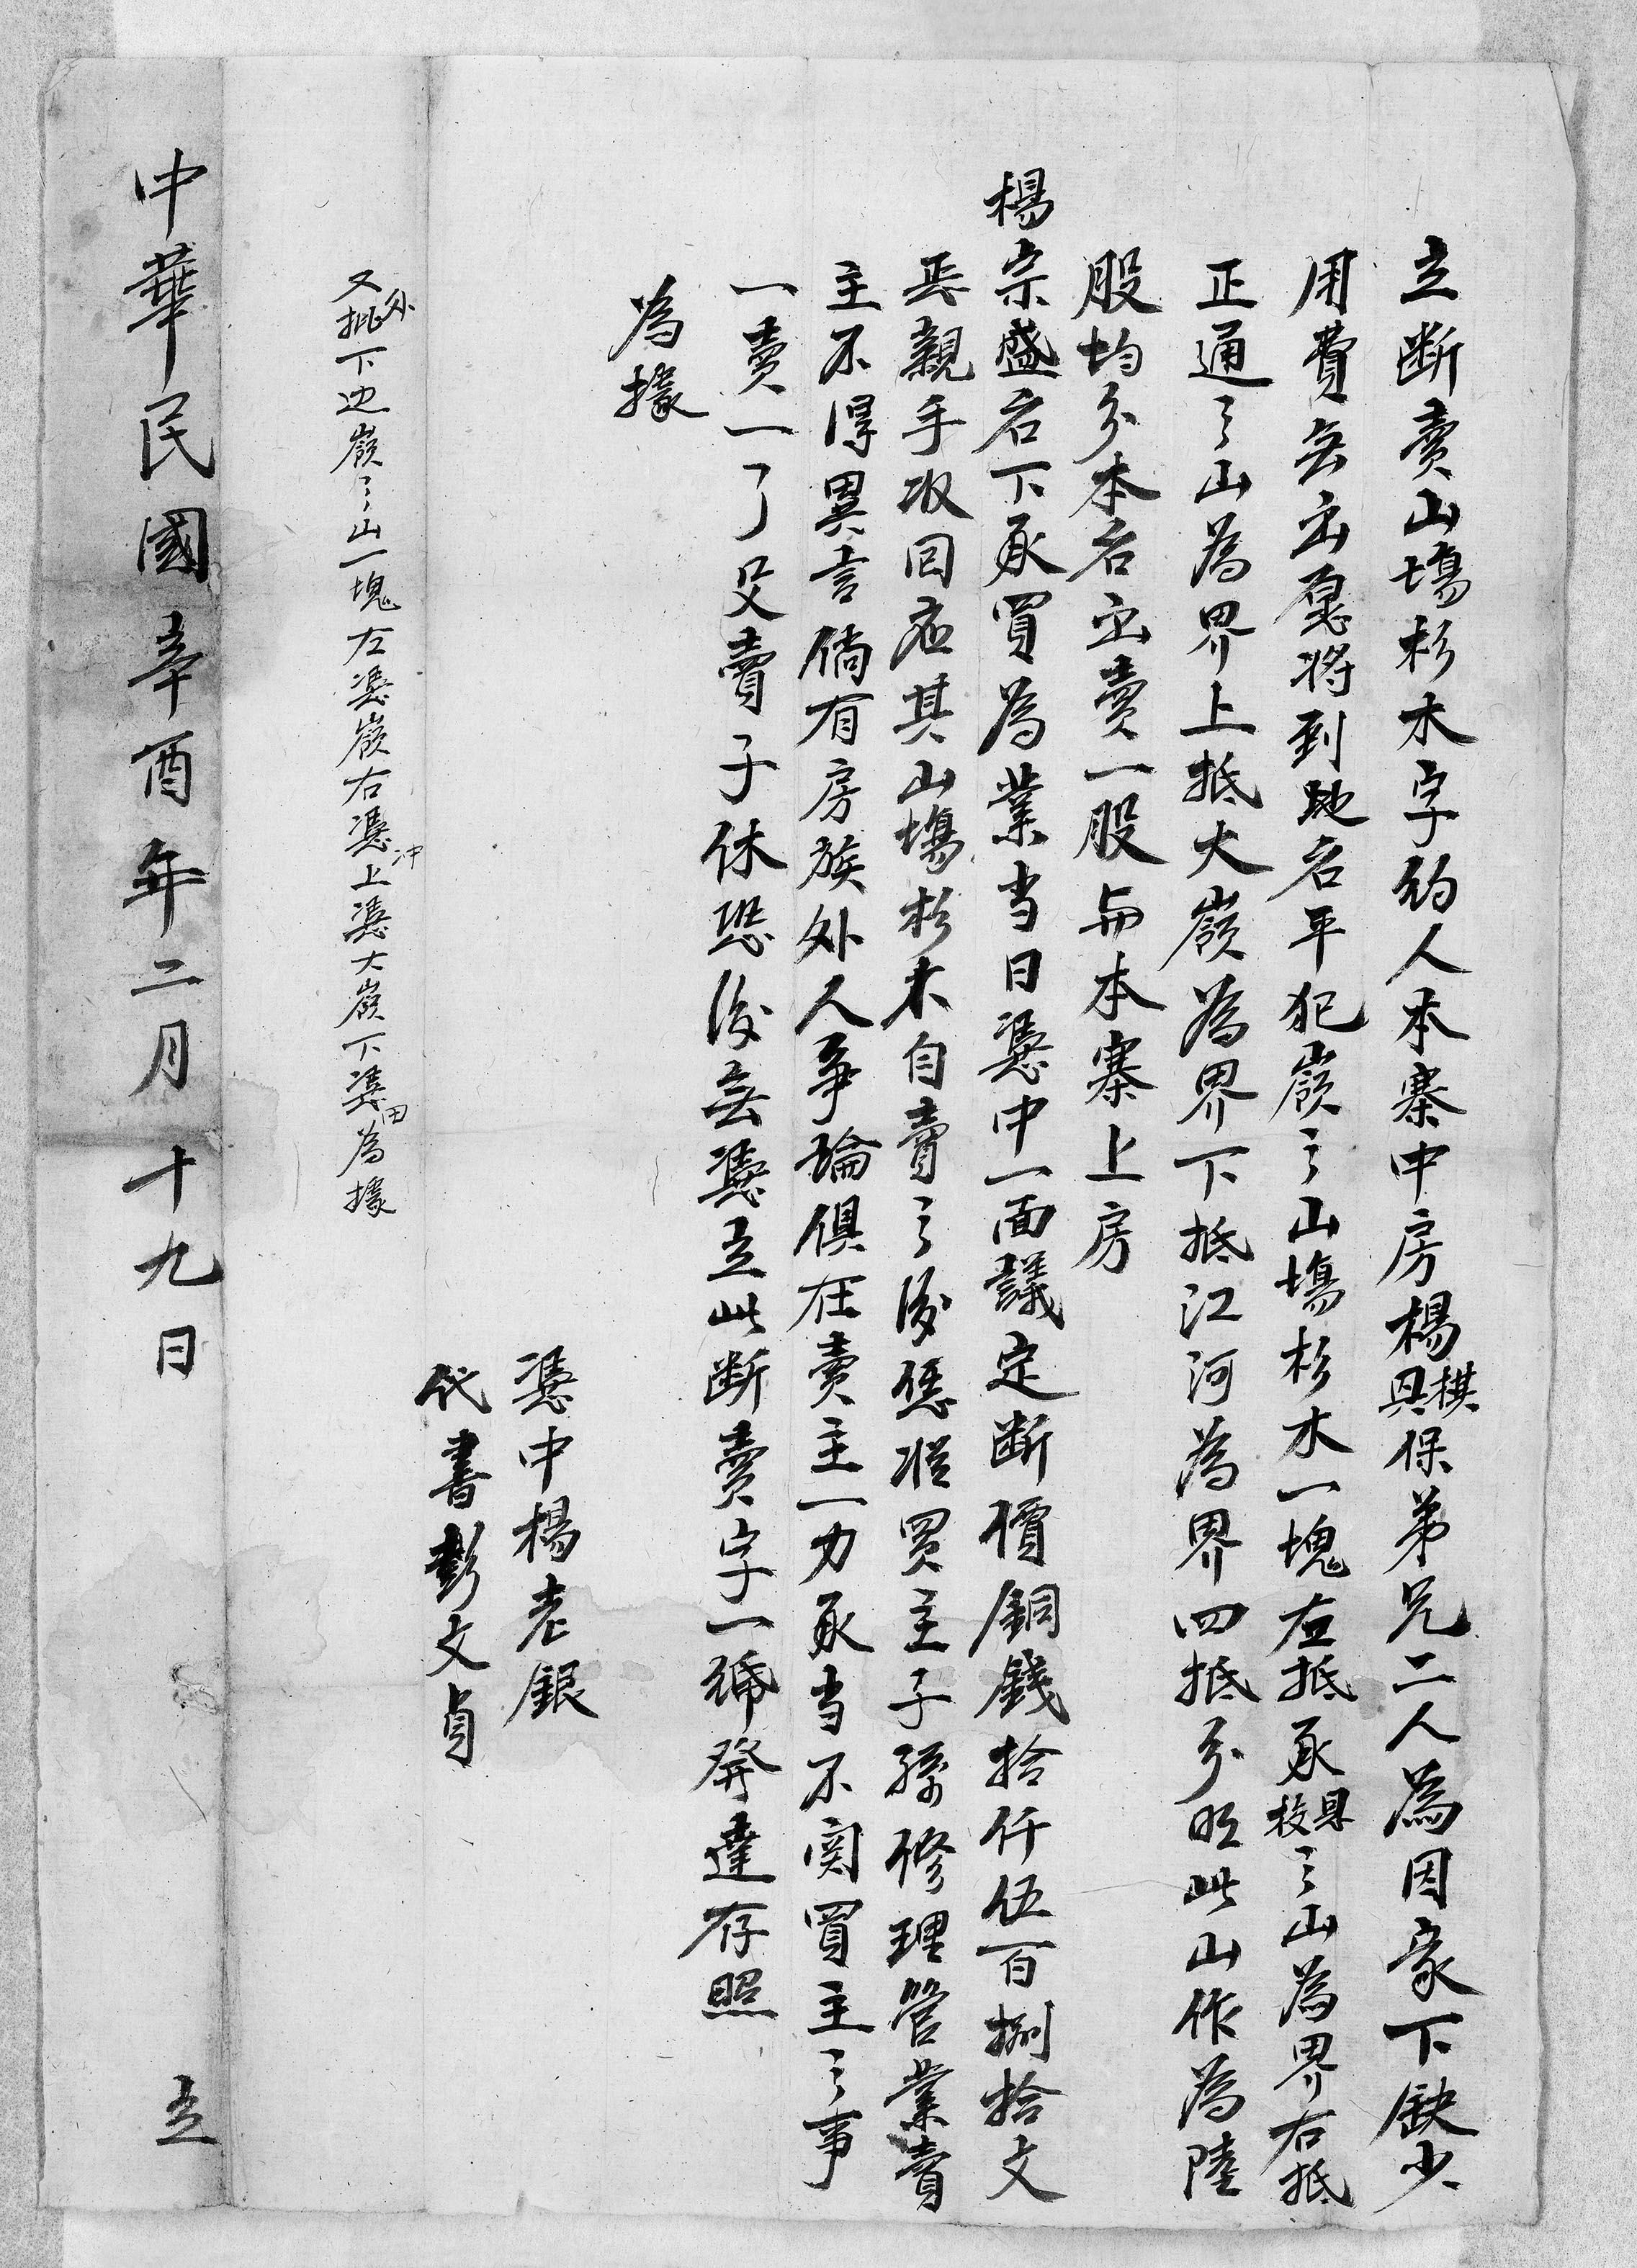 立断賣山塲杉木字約人本寨中房楊具棋保弟兄二人為因家下缺少
用費無出愿將到地名平犯嶺之山塲杉木一塊左抵承校具之山為界右抵
正通之山為界上抵大嶺為界下抵江河為界四抵分明此山作為陸
股均分本名出賣一股与本寨上房
楊宗盛名下承買為業当日憑中一面議定断價銅錢拾仟伍百捌拾文
親手收回应其山塲杉木自賣之後憑買主子孫修理管業賣
主不得異言倘有房族外人爭論俱在賣主一力承当不関買主之事
一賣一了父賣子休恐後無憑立此断賣字一紙發達存照
為據
憑中楊老銀
代書彭文貞
又外批下边嶺之山一塊左憑嶺右憑冲上憑大嶺下憑田為據
中華民國辛酉年二月十九日 立